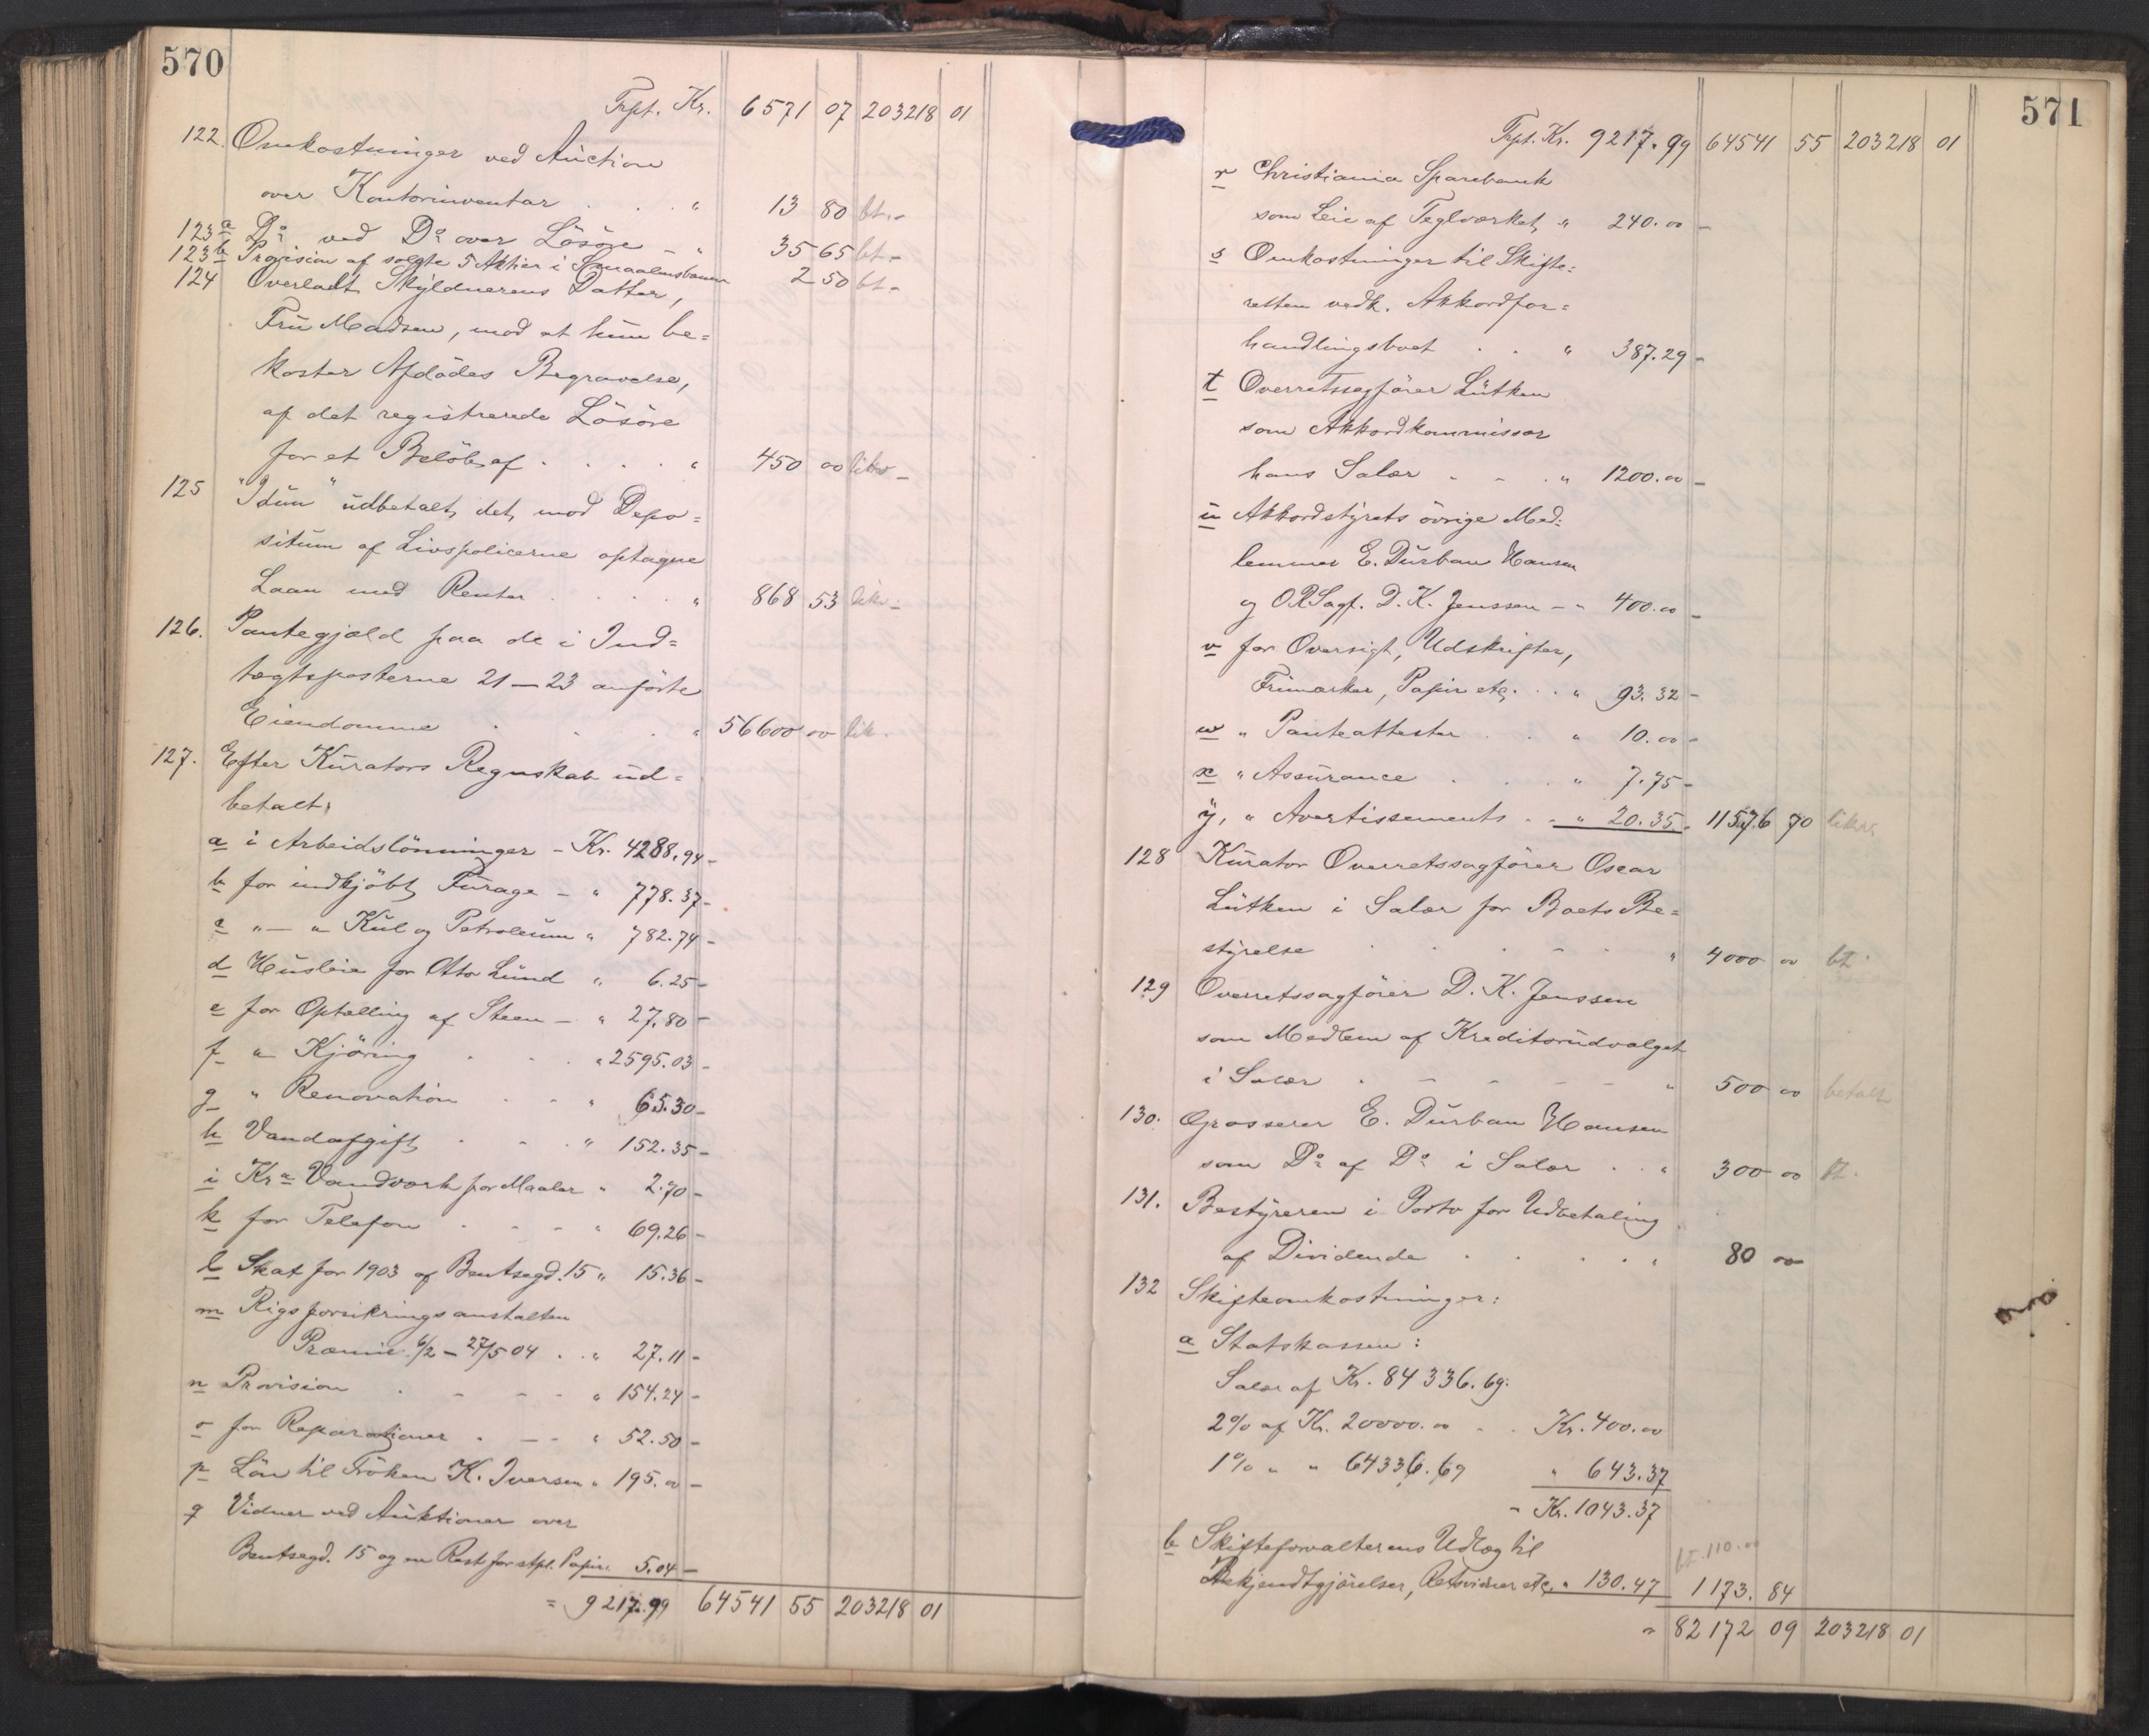 570
Trpt. Kr. 6571 07 203218 01
122. Omkostninger ved Auction
over Kontorinventar . . . " 13 80 bt.-
123a Do ved Do over Lösöre - " 35 65 bt.-
123b Provision af solgte 5 Aktier i Smaalensbanen 2 50 bt.-
124 Overladt Skyldnerens Datter,
Fru Madsen, mod at hun be=
koster Afdödes Begravelse,
af det registrerede Lösöre
for et Belöb af . . . . " 450 00 likv -
125 "Idun" udbetalt det, mod Depo=
situm af Livspolicerne optagne
Laan med Renter . . . . " 868 53 likv -
126. Pantegjæld paa de i Ind=
tægtsposterne 21 - 23 anförte
Eiendomme . . . . " 56600 00 lik.
127. Efter Kurators Regnskab ud=
betalt:
a i Arbeidslönninger - Kr. 4288.94 -
b for indkjöbt Furage - " 778.37 -
c " - " Kul og Petroleum " 782.74 -
d Husleie for Otto Lund " 6.25 -
e for Optælling af Steen - " 27.80 -
f " Kjöring . . . " 2595.03 -
g " Renovation . . " 65.30 -
h Vandafgift . . . " 152.35 -
i Kra Vandværk for Maaler " 2.70 -
k for Telefon . . . " 69.26 -
l Skat for 1903 af Bentsegd. 15 " 15.36 -
m Rigsforsikringsanstalten
Præmie 6/2 - 27/5 04 . . " 27.11 -
n Provision . . . . " 154.24 -
o for Reparationer . - - " 52.50 -
p Lön til Fröken K. Iversen " 195.00 -
q Vidner ved Auktioner over
Bentsegd. 15 og en Rest for stpl. Papir. 5.04 -
= 9217.99 64541 55 203218 01
571
Trpt. Kr. 9217.99 64541 55 203218 01
r Christiania Sparebank
som Leie af Teglværket " 240.00 -
s Omkostninger til Skifte=
retten vedk. Akkordfor=
handlingsboet . . " 387.29 -
t Overretssagförer Lütken
som Akkordkommissær
hans Salær - - . " 1200.00 -
u Akkordstyrets övrige Med=
lemmer E. Durban Hansen
og ORSagf. D. K. Jenssen - " 400.00 -
v for Oversigt, Udskrifter,
Frimærker, Papir etc. . . " 93.32 -
w " Panteattester . . " 10.00 -
x " Assurance . . . " 7.75 -
y, " Avertissements . . " 20.35 - 11576 70 likv.
128 Kurator Overretssagförer Oscar
Lütken i Salær for Boets Be=
styrelse . . . . " 4000 00 bt.
129 Overretssagförer D. K. Jenssen
som Medlem af Kreditorudvalget
i Salær . - - - - " 500 00 betalt
130. Grosserer E. Durban Hansen
som Do af Do i Salær . . " 300 00 bt.
131. Bestyreren i Porto for Udbetaling
af Dividende . . . . " 80 00
132 Skifteomkostninger:
a Statskassen:
Salær af Kr. 84336.69:
2% af Kr. 20000.00 . . Kr. 400.00
1% " " 64336.69 " 643.37
- Kr. 1043.37
b Skifteforvalterens Udlæg til
bt. 110.00
Bekjendtgjörelser, Retsvidner etc. " 130.47 1173.84
= 82172 09 203218 01